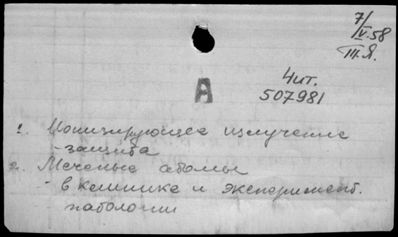 7/IV.58
Ш.Я.
Чит.
507981
А
1. Ионизирующее излучение
- защита
2. Меченые атомы
- в клинике и эксперимент.
патологии